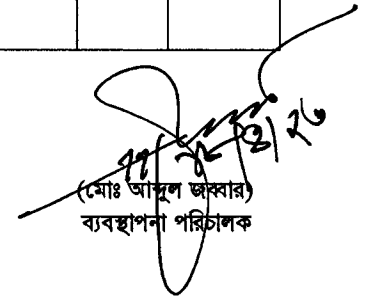 (মোঃ আব্দুল জব্বার)
ব্যবস্থাপনা পরিচালক